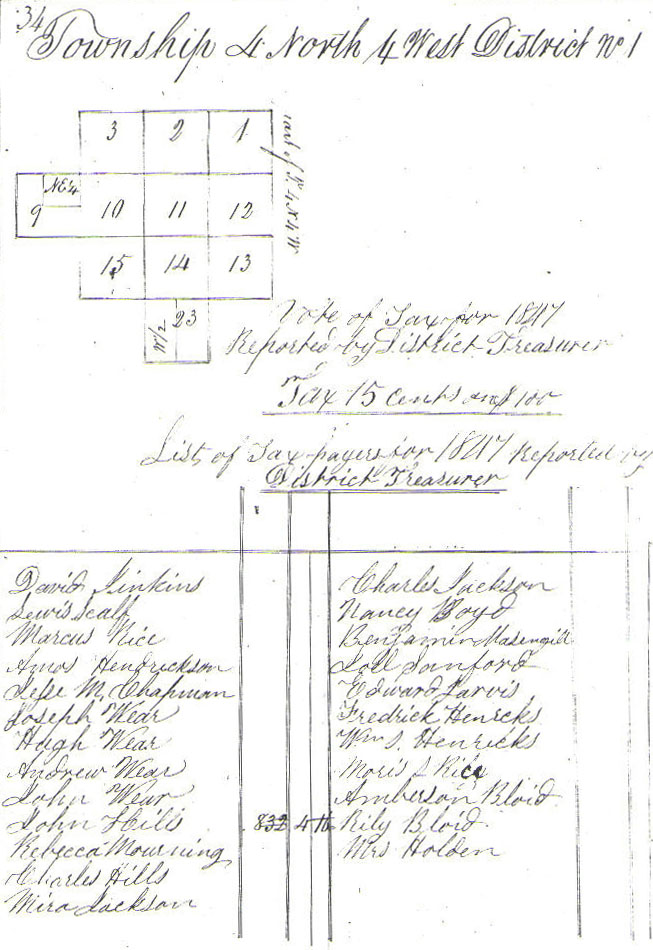 34
Township 4 North 4 West District No 1
3 2 1
part of T 4 N 4 W
NE 4
9 10 11 12
15 14 13
W 1/2 23
Vote of Tax for 1847
Reported by District Treasurer
Tax 15 cents on $100
List of Tax payers for 1847 Reported by
District Treasurer
David Jinkins
Lewis Scalf
Marcus Rice
Amos Hendrickson
Jesse M. Chapman
Joseph Wear
Hugh Wear
Andrew Wear
John Wear
John Hills 832
Rebecca Mourning
Charles Hills
Mira Jackson
Charles Jackson
Nancy Boyd
Benjamin Masengill
Sanford
Edward Jarvis
Fredrick Henricks
Wm S. Henricks
Moris J Rice
Amberson Bloid
Rily Bloid
Mrs Holden